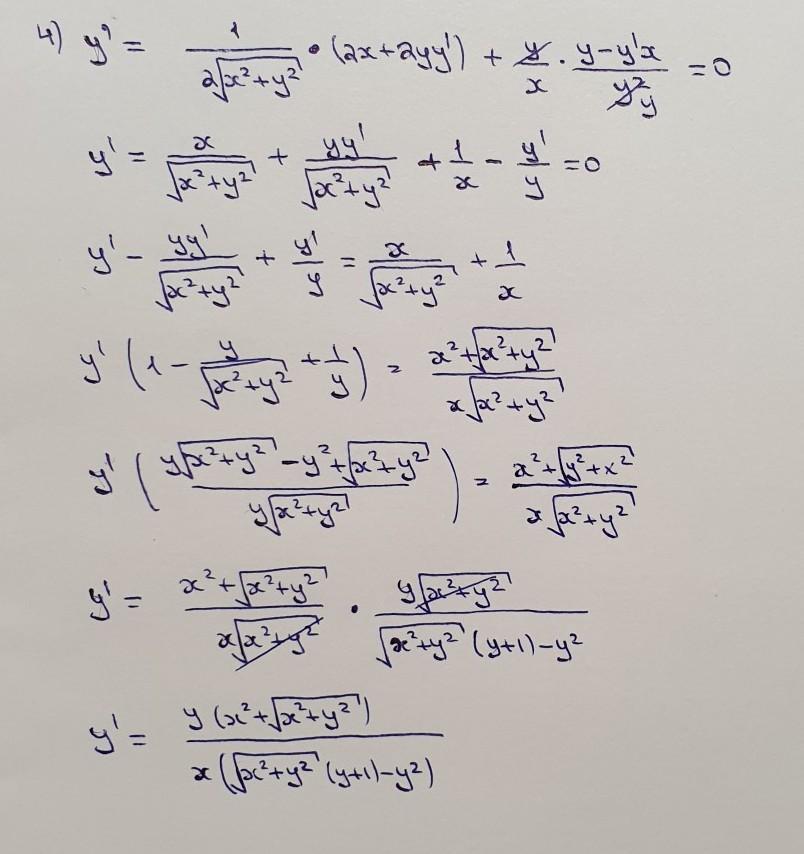 4) y' = 1/(2√(x²+y²)) • (2x+2yy') + y/x · (y-y'x)/(y² y) = 0
y' = x/√(x²+y²) + yy'/√(x²+y²) + 1/x - y'/y = 0
y' - yy'/√(x²+y²) + y'/y = x/√(x²+y²) + 1/x
y' (1 - y/√(x²+y²) + 1/y) = (x²+√(x²+y²))/(x√(x²+y²))
y' ((y√(x²+y²) - y² + √(x²+y²))/(y√(x²+y²))) = (x²+√(y²+x²))/(x√(x²+y²))
y' = (x²+√(x²+y²))/(x√(x²+y²)) • (y√(x²+y²))/(√(x²+y²) (y+1) - y²)
y' = (y (x²+√(x²+y²)))/(x(√(x²+y²) (y+1) - y²))